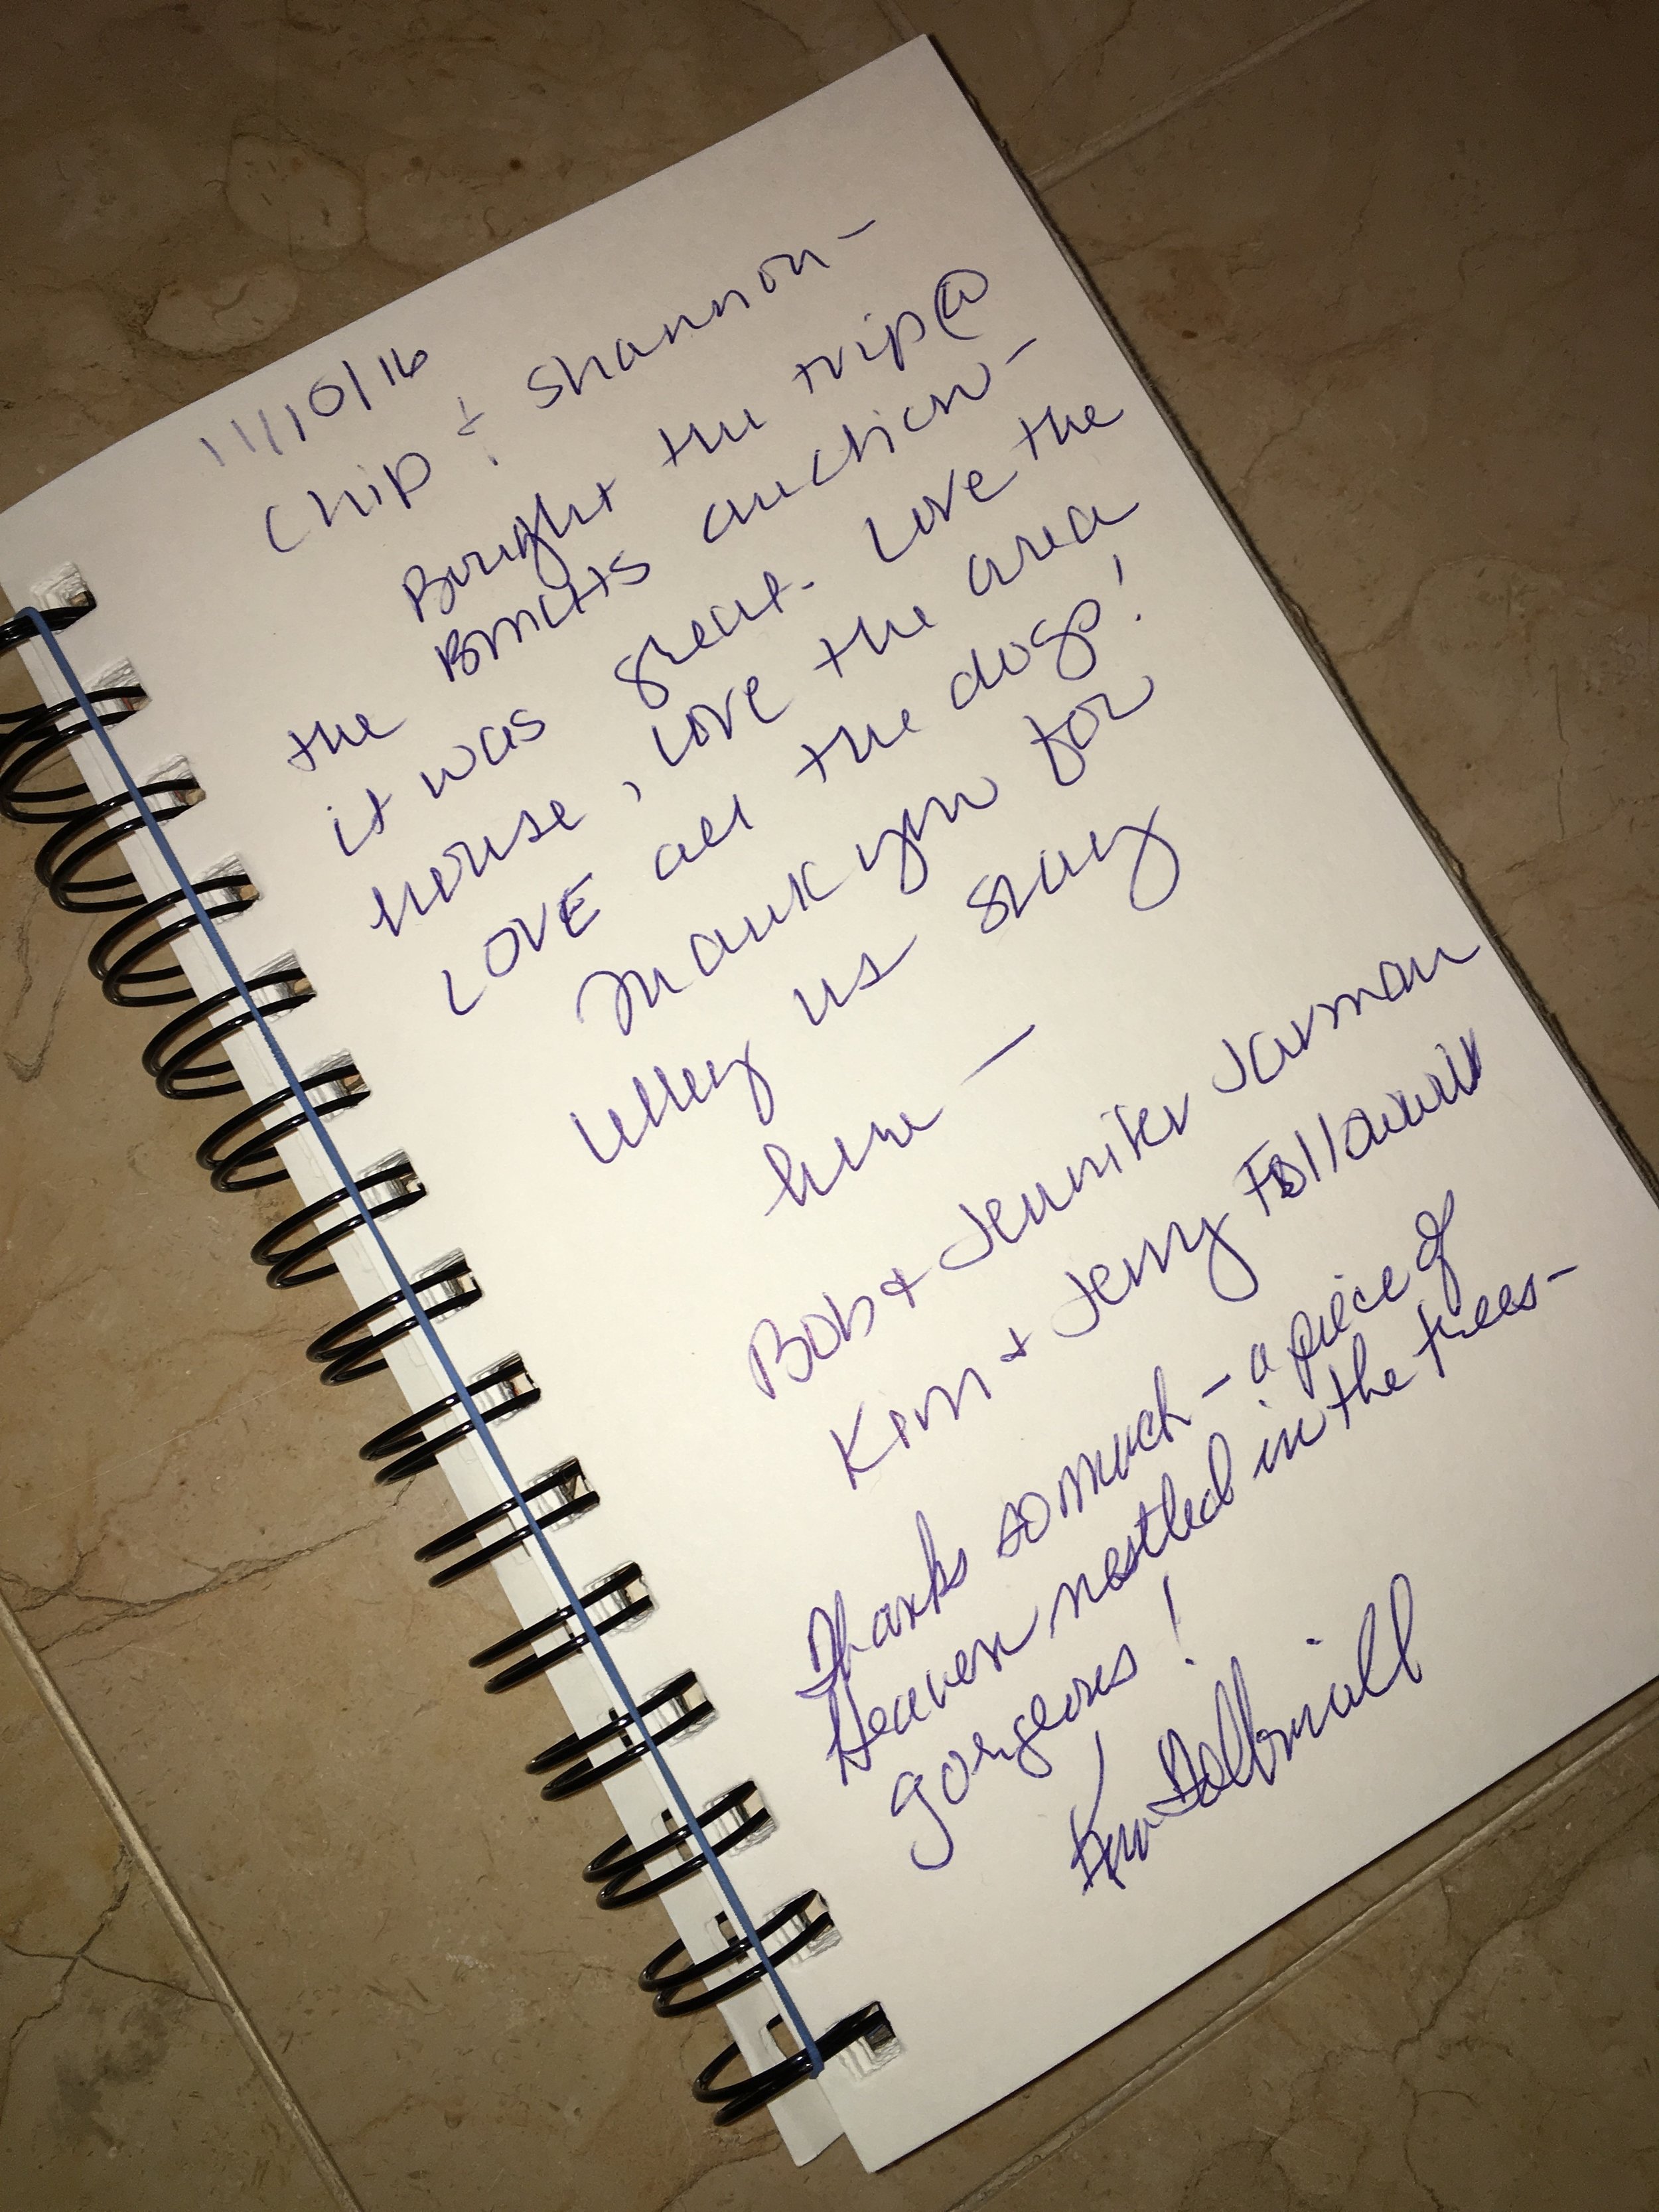 11/10/16
Chip & Shannon -
Bought the trip @
the auction -
it was great. Love the
house, love the area
LOVE all the dogs!
Thank you for
letting us stay
here -
Bob & Jennifer Jarman
Kim & Jerry
Thanks so much - a piece of
Heaven nestled in the trees -
gorgeous!
Kim